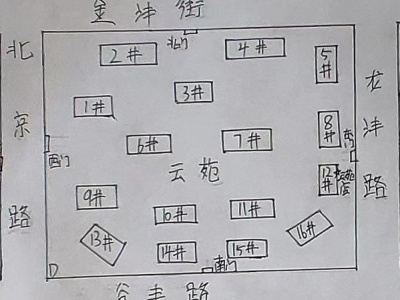 金沣街
北门
2#
4#
5#
北京路
3#
1#
8#
6#
7#
东门
西门
云苑
沣路
12#
9#
10#
11#
13#
14#
15#
16#
南门
D
谷丰路